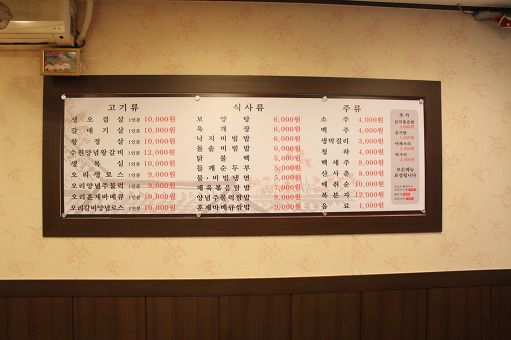 고기류
생오겹살 1인분 10,000원
갈매기살 1인분 10,000원
항정살 1인분 10,000원
수원양념왕갈비 1인분 12,000원
생등심 1인분 10,000원
오리생로스 1인분 9,000원
오리양념주물럭 1인분 9,000원
오리훈제바베큐 1인분 10,000원
오리갈비양념로스 1인분 10,000원
식사류
보양탕 6,000원
육개장 6,000원
낙지비빔밥 6,000원
돌솥비빔밥 6,000원
닭불백 5,000원
들깨순두부 5,000원
물·비빔냉면 5,000원
제육볶음쌈밥 7,000원
양념주물럭쌈밥 9,000원
훈제바베큐쌈밥 9,000원
주류
소주 4,000원
맥주 4,000원
생막걸리 3,000원
청하 4,000원
백세주 8,000원
산사춘 8,000원
매취순 10,000원
복분자 12,000원
음료 1,000원
추가
김치볶음밥
공기밥
야채사리
모든메뉴
포장됩니다